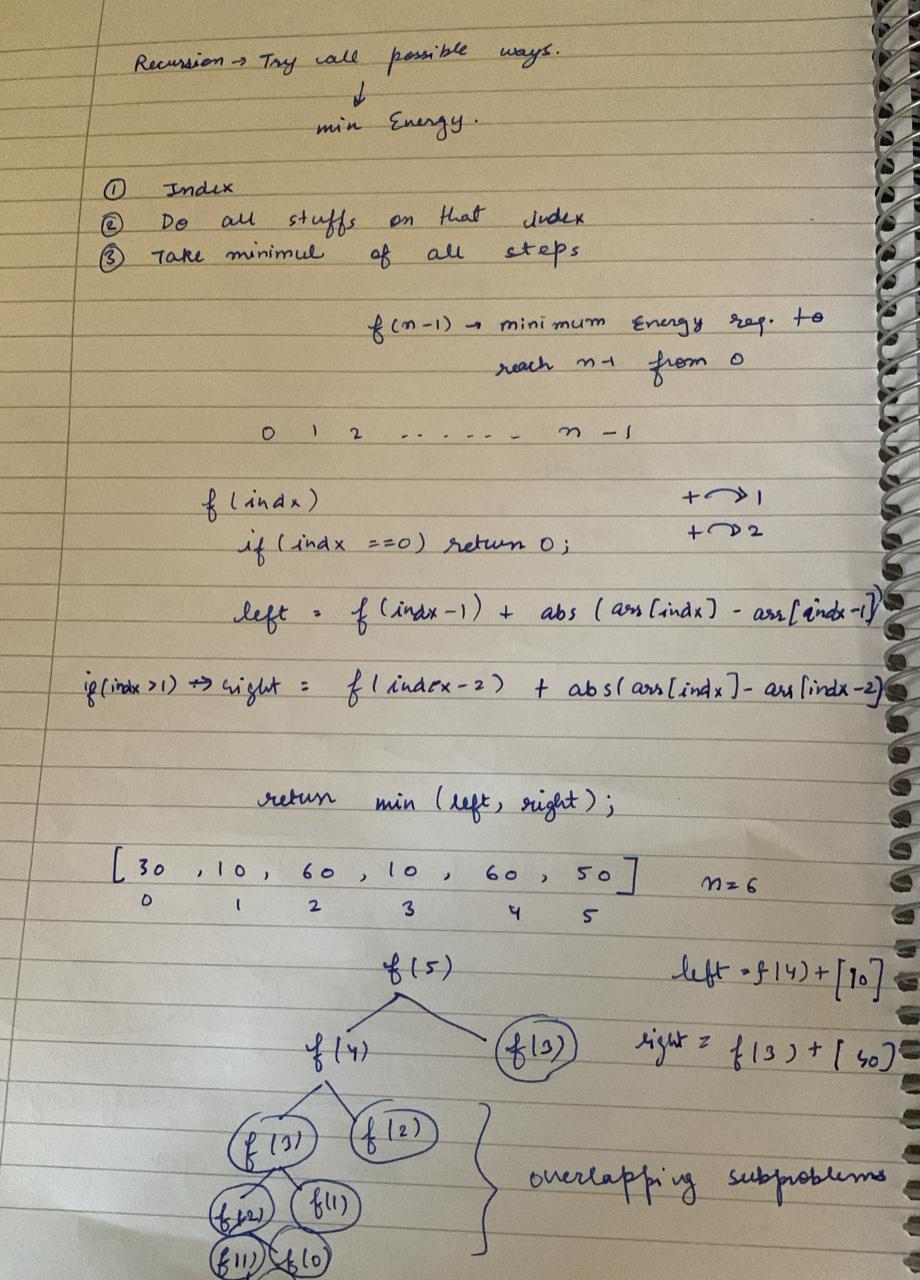 Recursion → Try all possible ways.
↓
min Energy.
① Index
② Do all stuffs on that index
③ Take minimul of all steps
f(n-1) → minimum Energy req. to
reach n-1 from 0
0 1 2 ...... n-1
f(indx)
+ ↷ 1
if (indx ==0) return 0;
+ ↷ 2
left = f(indx-1) + abs (arr[indx] - arr[indx-1])
if(indx >1) → right = f(index-2) + abs(arr[indx]- arr[indx-2)
return min (left, right);
[30, 10, 60, 10, 60, 50] n=6
0 1 2 3 4 5
f(5) left = f(4) + [10]
f(4) f(3) right = f(3) +
f(3) f(2)
overlapping subproblems
f(2) f(1)
f(1) f(0)